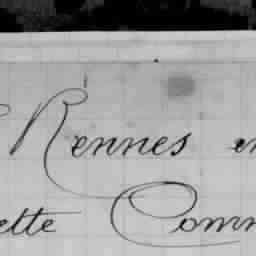 Rennes en
ette Comm